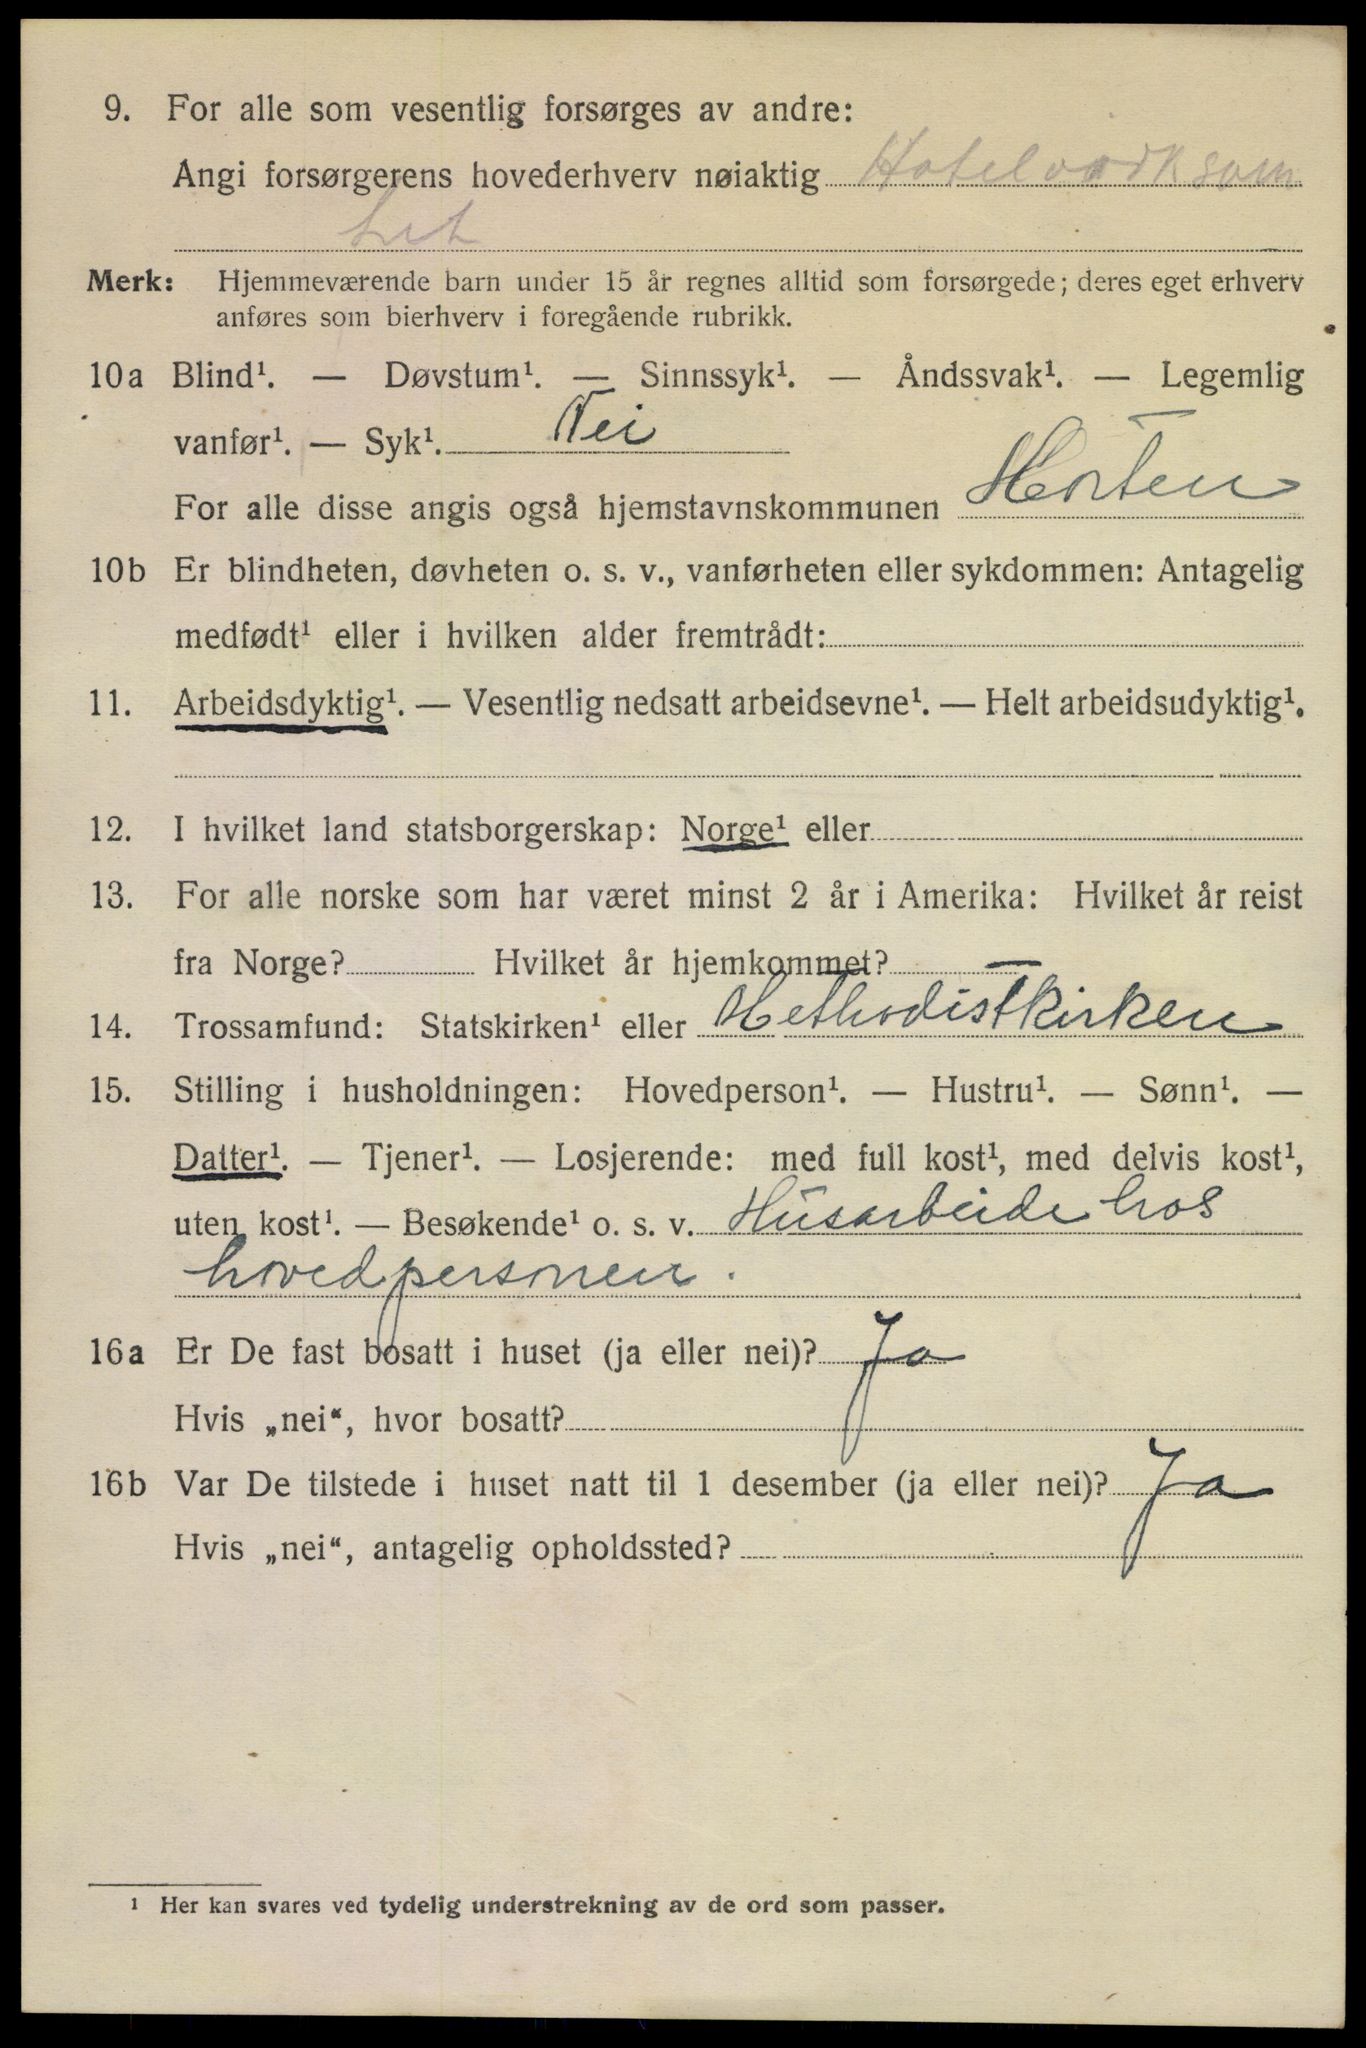 9. For alle som vesentlig forsørges av andre:
Angi forsørgerens hovederhverv nøiaktig Hotelvirksom
het
Merk: Hjemmeværende barn under 15 år regnes alltid som forsørgede; deres eget erhverv
anføres som bierhverv i foregående rubrikk.
10a Blind¹. — Døvstum¹. — Sinnssyk¹. — Åndssvak¹. — Legemlig
vanfør¹. — Syk¹. Nei
For alle disse angis også hjemstavnskommunen Horten
10b Er blindheten, døvheten o. s. v., vanførheten eller sykdommen: Antagelig
medfødt¹ eller i hvilken alder fremtrådt:
11. Arbeidsdyktig¹. — Vesentlig nedsatt arbeidsevne¹. — Helt arbeidsudyktig¹.
12. I hvilket land statsborgerskap: Norge¹ eller
13. For alle norske som har været minst 2 år i Amerika: Hvilket år reist
fra Norge? Hvilket år hjemkommet?
14. Trossamfund: Statskirken¹ eller Methodistkirken
15. Stilling i husholdningen: Hovedperson¹. — Hustru¹. — Sønn¹. —
Datter¹. — Tjener¹. — Losjerende: med full kost¹, med delvis kost¹,
uten kost¹. — Besøkende¹ o. s. v. Husarbeide hos
hovedpersonen.
16a Er De fast bosatt i huset (ja eller nei)? Ja
Hvis „nei“, hvor bosatt?
16b Var De tilstede i huset natt til 1 desember (ja eller nei)? Ja
Hvis „nei“, antagelig opholdssted?
¹ Her kan svares ved tydelig understrekning av de ord som passer.